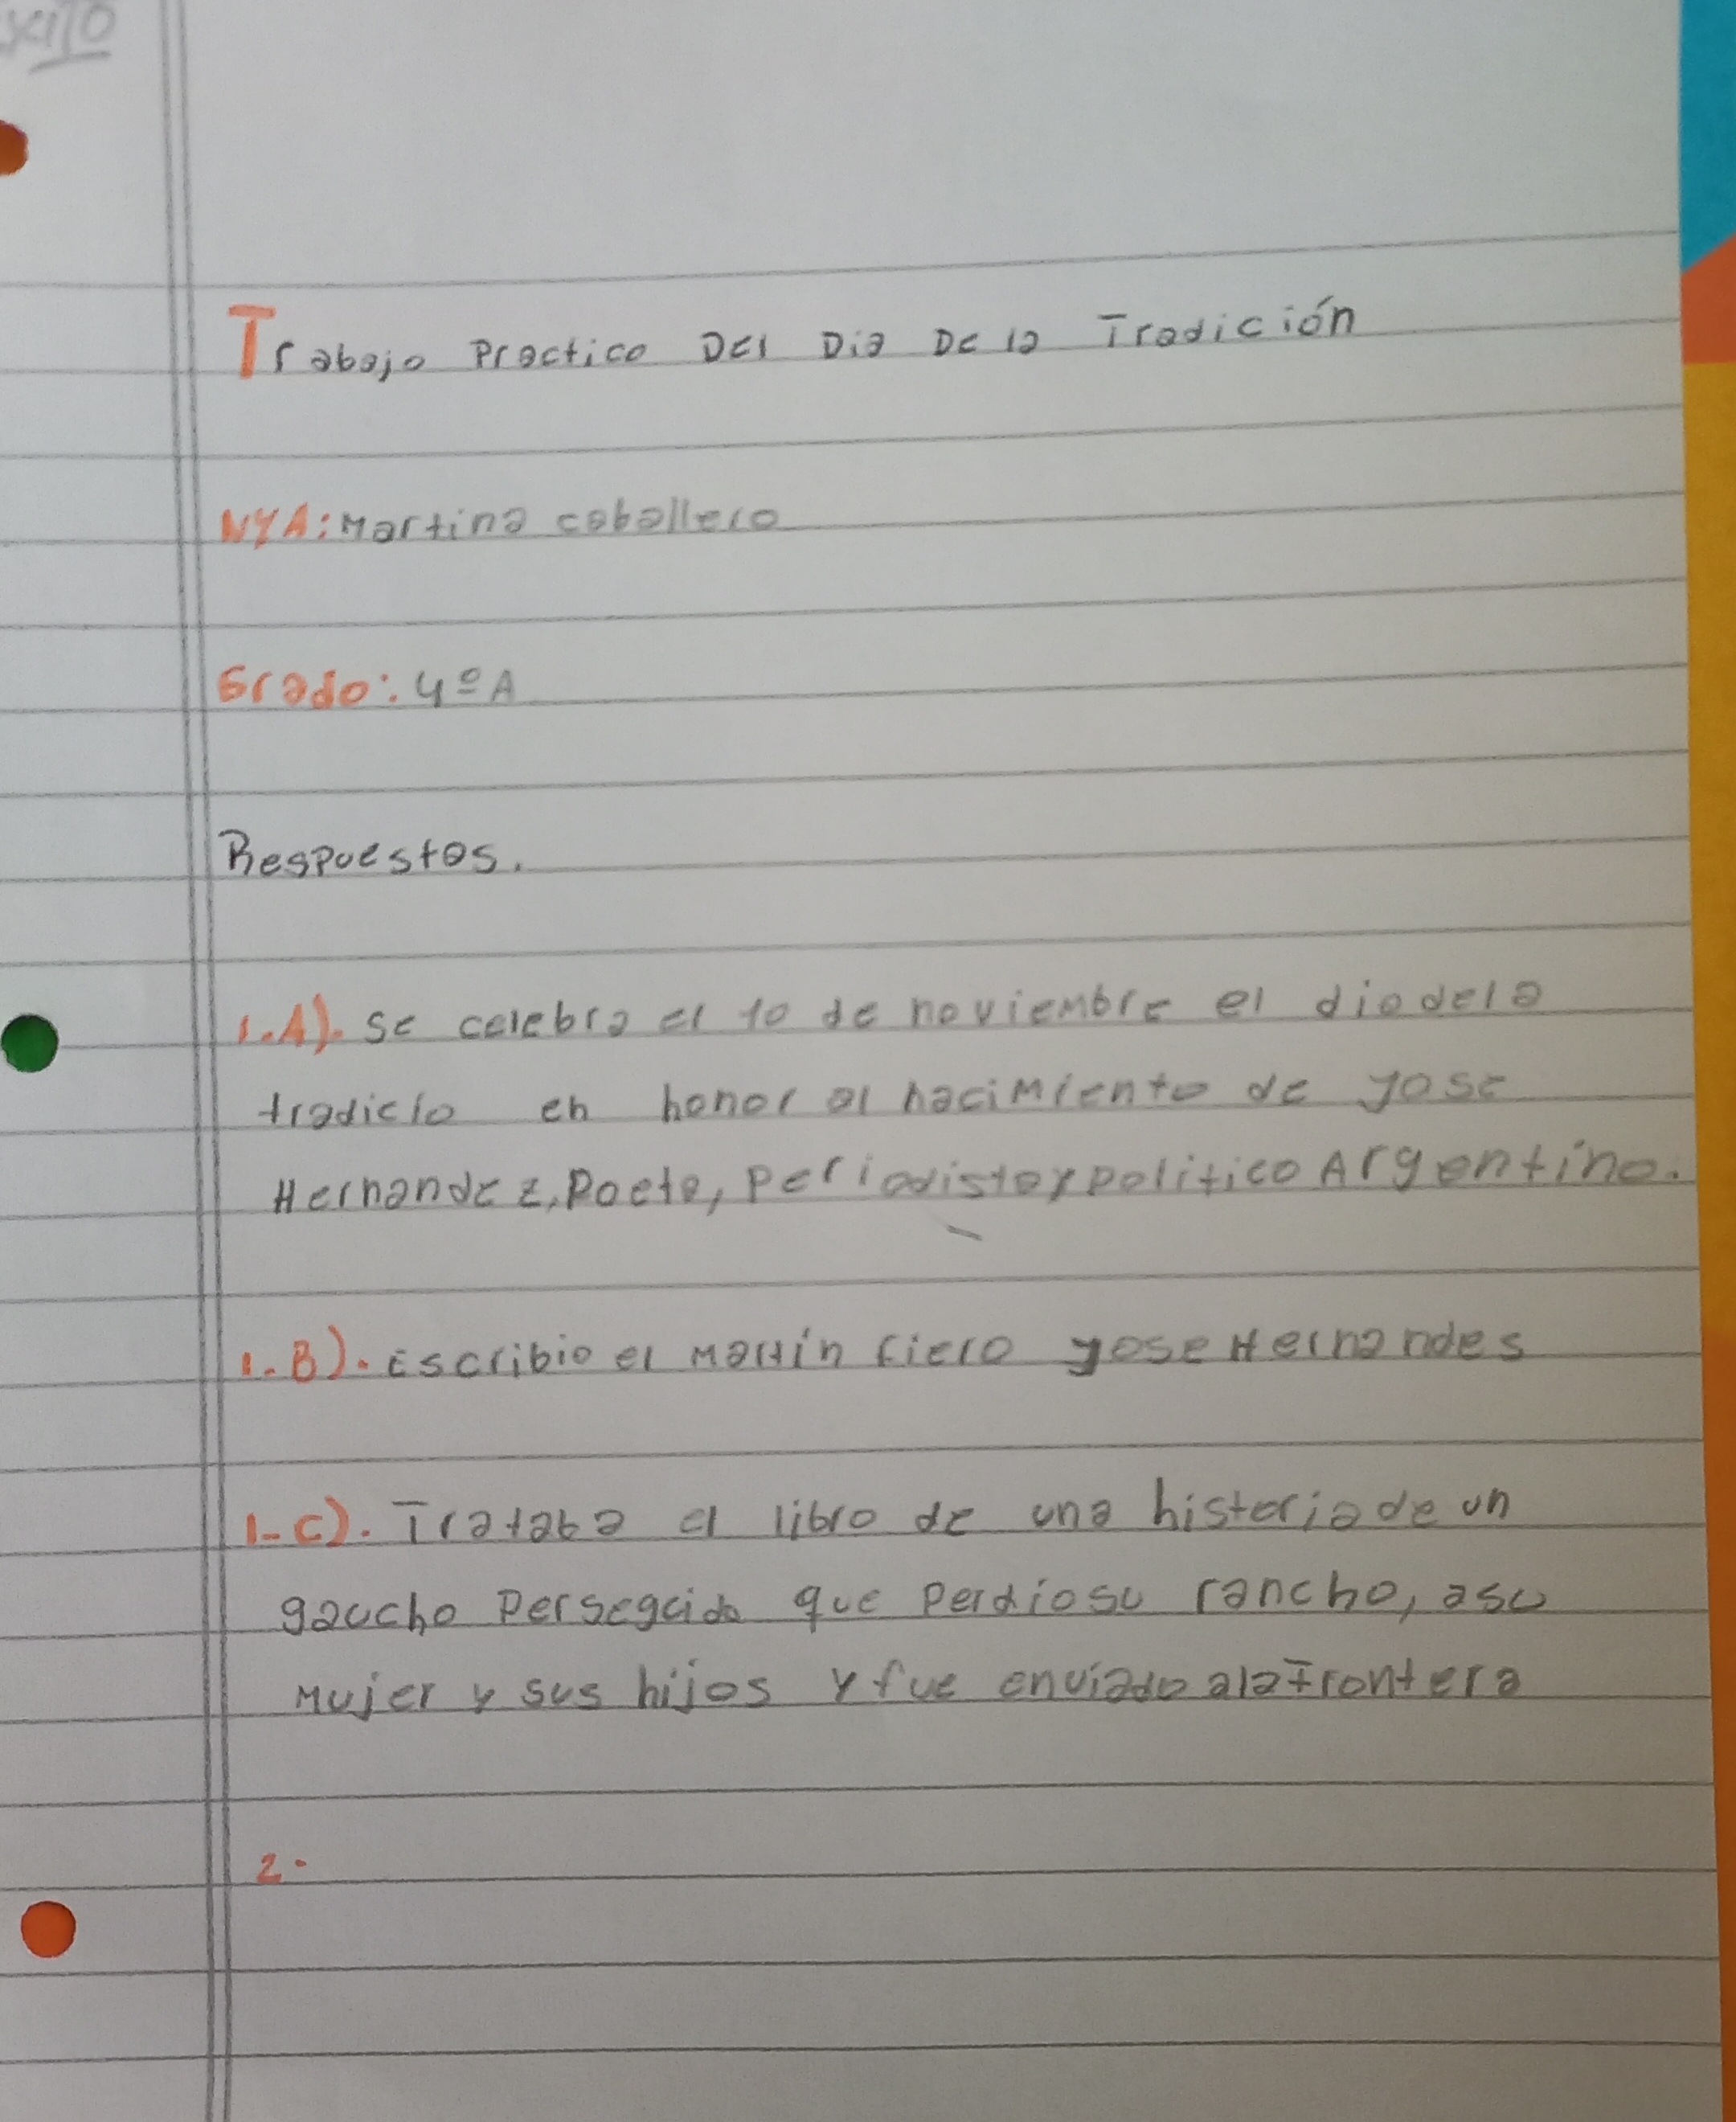 Trabajo Practico Del Dia De la Tradición
NYA: Martina caballero
Grado: 4º A
Respuestas.
1.A). Se celebra el 10 de noviembre el dia dela
tradicio en honor al nacimiento de Jose
Hernandez, Poeta, Periodista y politico Argentino.
1.B). Escribio el Martín fierro Jose Hernandes
1-C). Trataba el libro de una historia de un
gaucho Persegcido que Perdio su rancho, a su
Mujer y sus hijos y fue enviado a la Frontera
2.